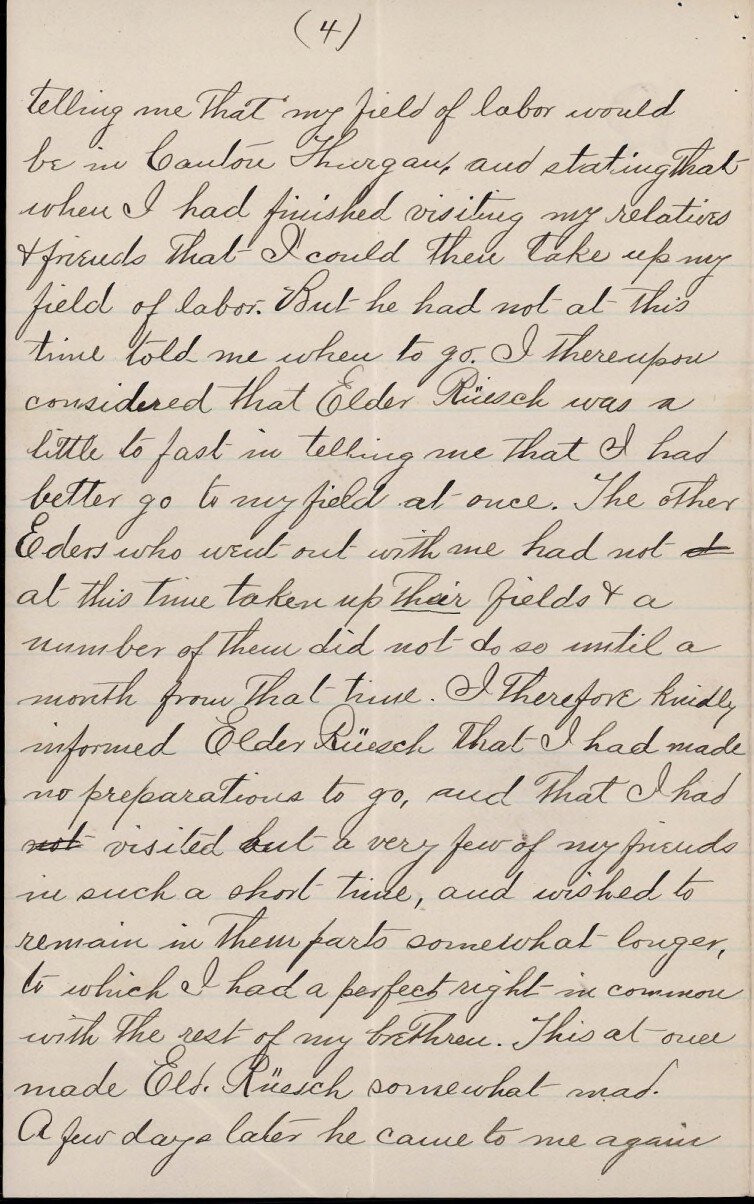 (4)
telling me that my field of labor would
be in Canton Thurgau, and stating that
when I had finished visiting my relatives
& friends that I could then take up my
field of labor. But he had not at this
time told me when to go. I thereupon
considered that Elder Rüesch was a
little to fast in telling me that I had
better go to my field at once. The other
Eders who went out with me had not t
at this time taken up their fields & a
number of them did not do so until a
month from that time. I therefore kindly
informed Elder Rüesch that I had made
no preparations to go, and that I had
not visited but a very few of my friends
in such a short time, and wished to
remain in them parts somewhat longer,
to which I had a perfect right in common
with the rest of my brethren. This at once
made Eld. Rüesch somewhat mad.
A few days later he came to me again